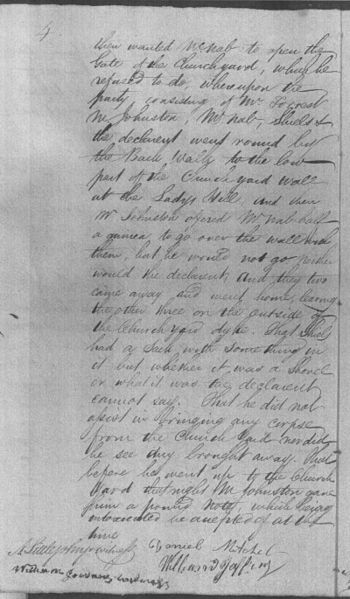 4
then wanted McNab to open the
Gate of the Churchyard, which he
refused to do, whereupon the
party consisting of Mr Forrest
Mr Johnston, McNab, Shiels &
the declarent went round by
the Back Walls to the low
part of the Church yard wall
at the Ladys Hill and then
Mr Johnston offered McNab half
a guinea to go over the wall with
them, but he would not go neither
would the declarent and they two
came away and went home, leaving
the other three on the outside of
the Church yard dyke. That Shiels
had a Sack with something in
it but whether it was a Shovel
or what it was the declarent
cannot say. That he did not
assist in bringing any corpse
from the Church Yard nor did
he see any brought away. That
before he went up to the Church
Yard that night Mr Johnston gave
him a pound note, which being
intoxicated he accepted of at the
time
Daniel Mitchel
witness
William